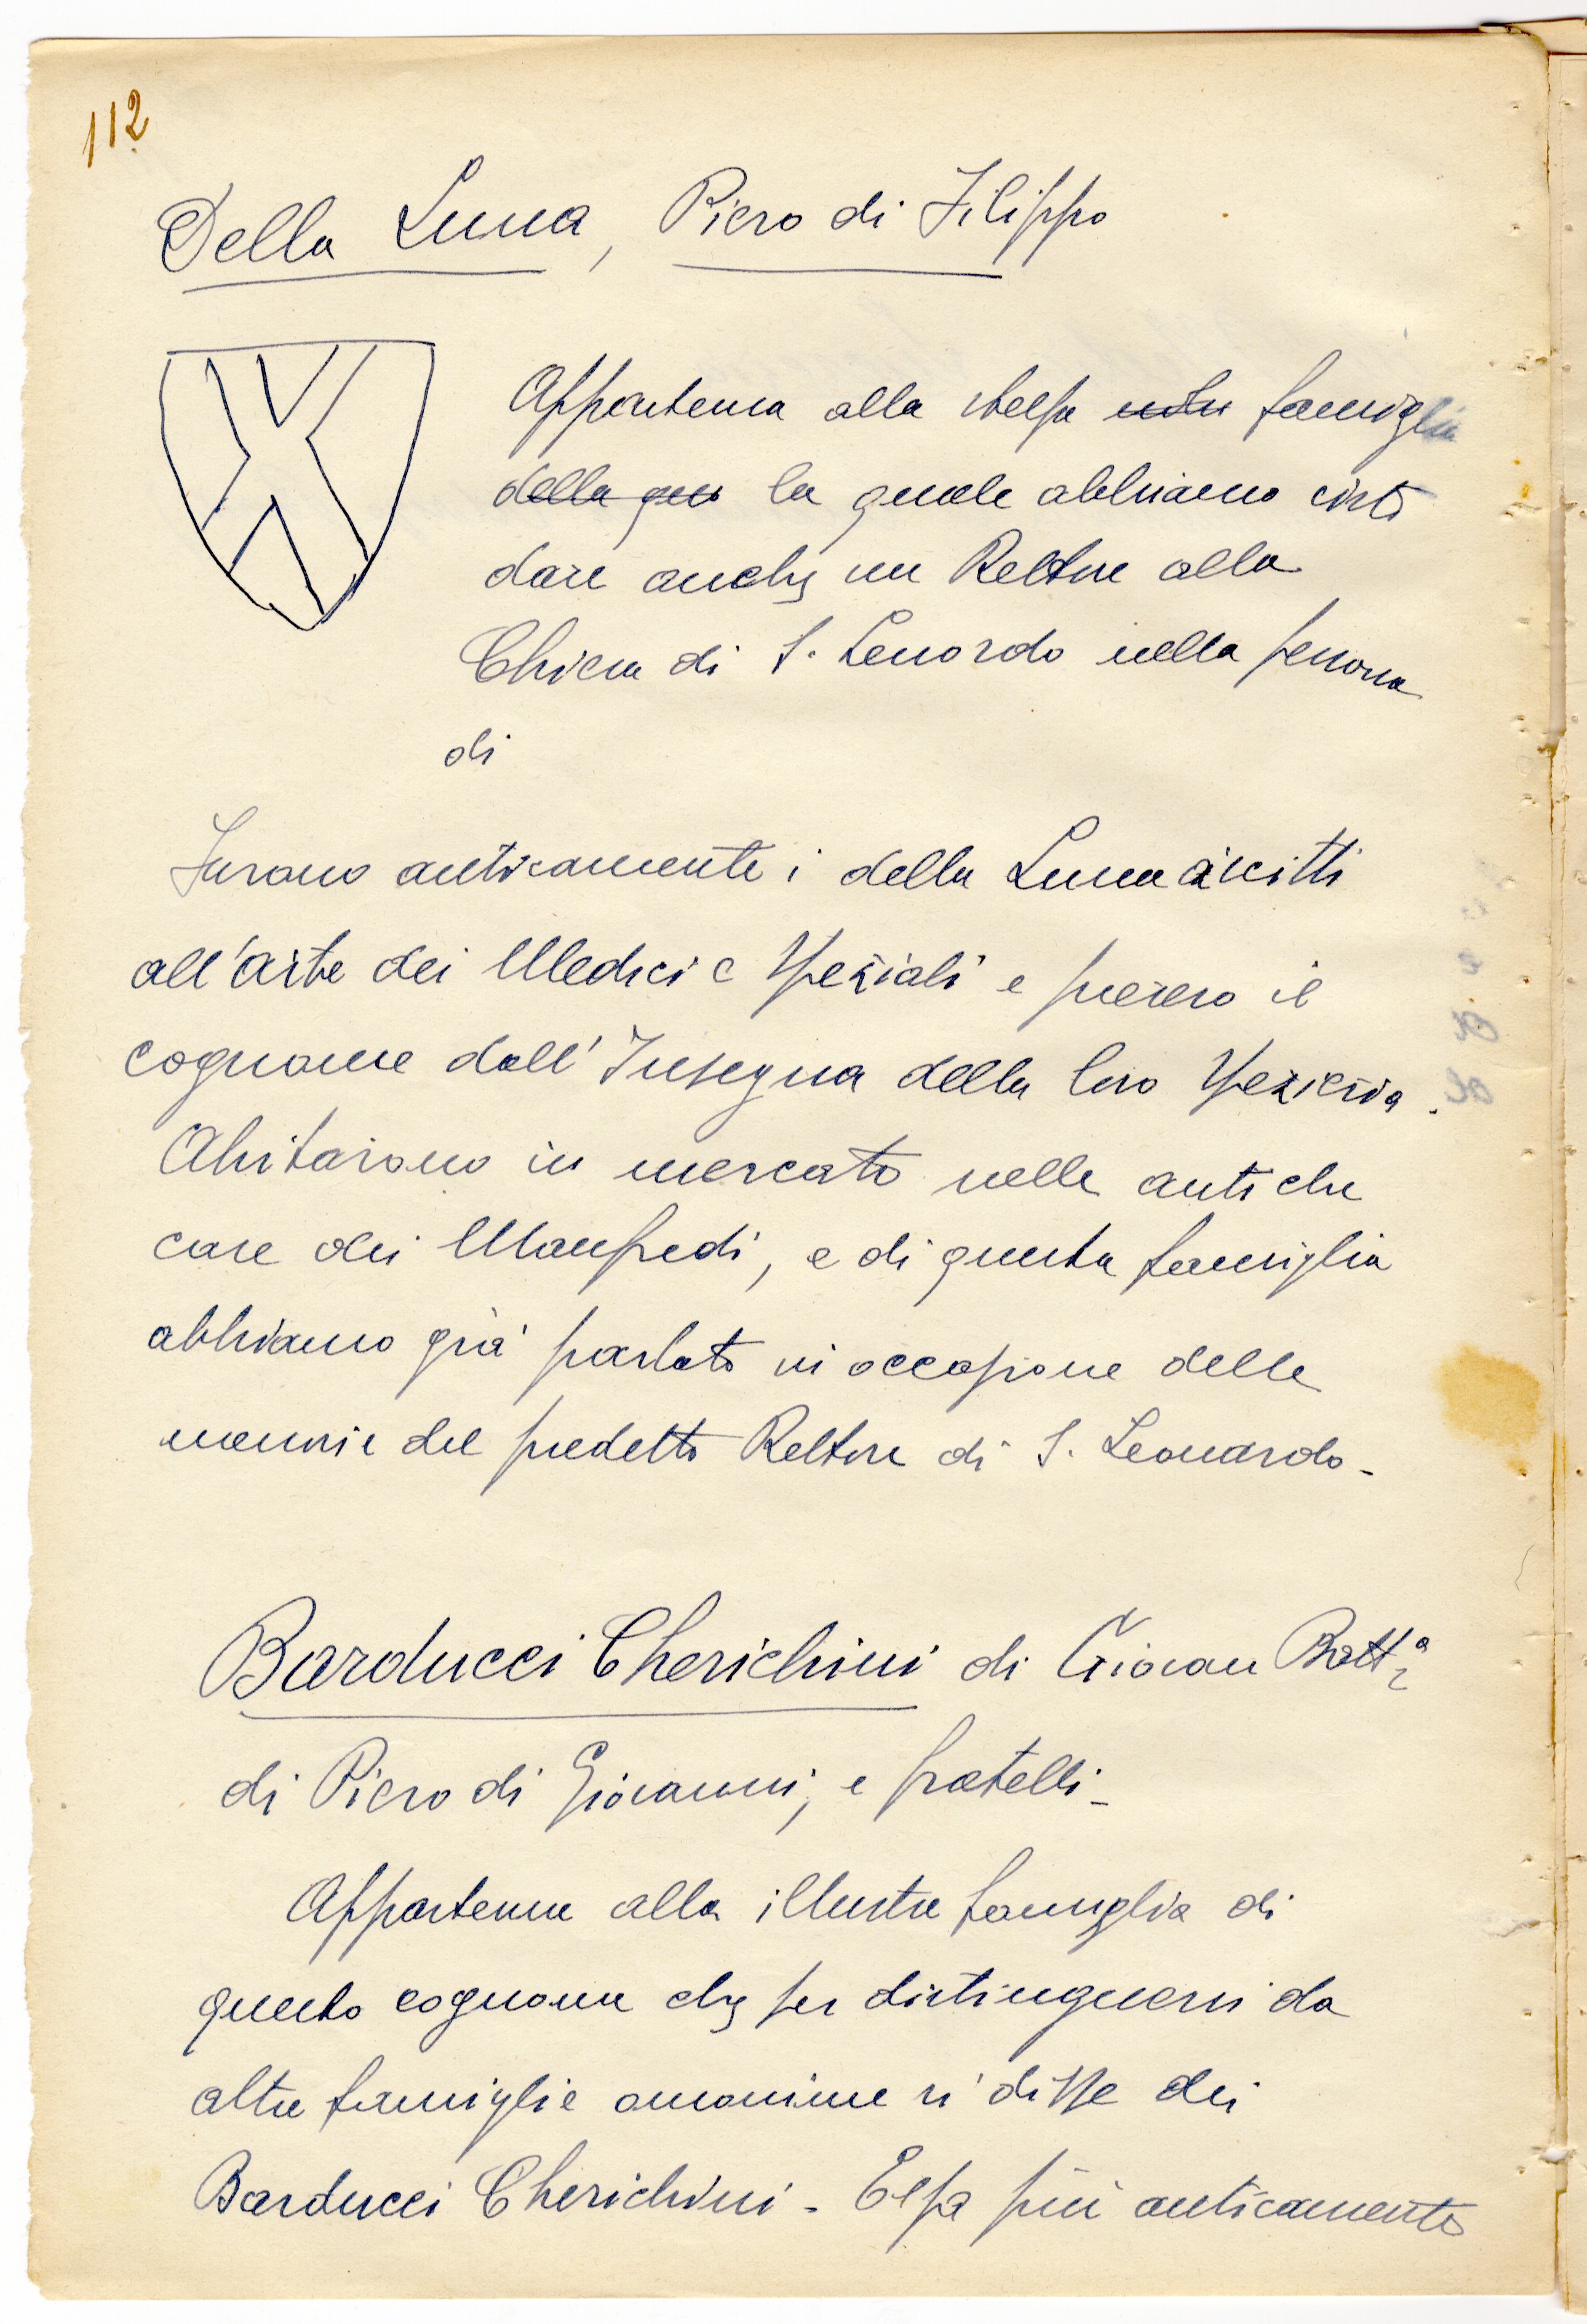 112
Della Luna, Piero di Filippo
Apparteneva alla stessa famiglia
della quo la quale abbiamo visto
dare anche un Rettore alla
Chiesa di S. Lenardo nella persona
di
Furono anticamente i della Luna ascitti
all'arte dei Medici e Speziali e presero il
cognome dall'Insegna della loro Spezieria.
Abitarono in mercato nelle antiche
case dei Manfredi, e di questa famiglia
abbiamo già parlato in occasione delle
memorie del predetto Rettore di S. Leonardo -
Barducci Cherichini di Giovan Batt.a
di Piero di Giovanni, e fratelli -
Appartenne alla illustre famiglia di
questo cognome che per distinguersi da
altre famiglie omonime si disse dei
Barducci Cherichini - Essa più anticamente